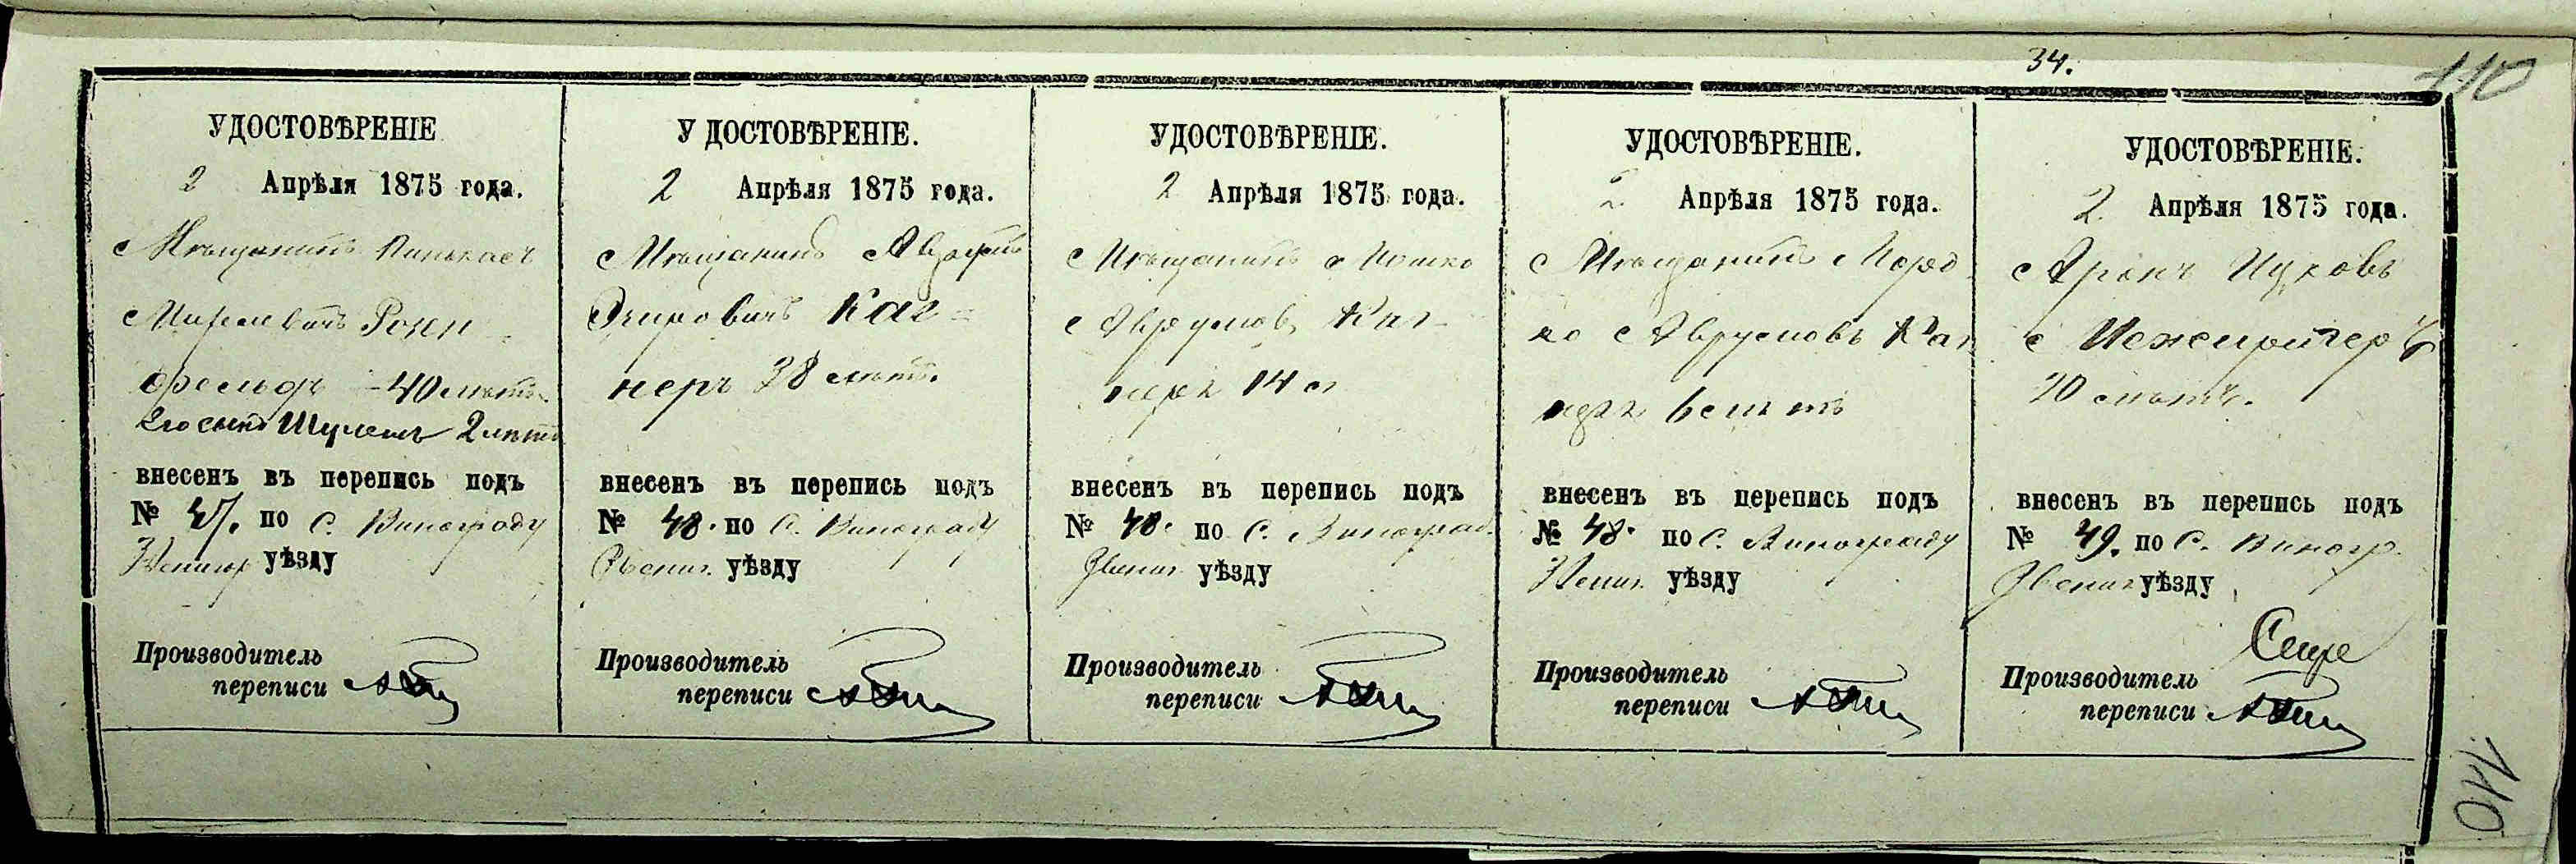 34.
110
УДОСТОВѢРЕНІЕ
2 Апрѣля 1875 года.
Мѣщанинъ Пинькасъ
Розен-
фельдъ - 40 лѣтъ
Его сынъ Шулемъ 2 лѣтъ
внесенъ въ перепись подъ
№ 47. по С. Винограду
Звениг уѣзду
Производитель
переписи
УДОСТОВѢРЕНІЕ.
2 Апрѣля 1875 года.
Мѣщанинъ Аврумъ
Каг-
неръ 38 лѣтъ.
внесенъ въ перепись подъ
№ 48. по С. Винограду
Звениг. уѣзду
Производитель
переписи
УДОСТОВѢРЕНІЕ.
2 Апрѣля 1875 года.
Мѣщанинъ Мошко
Аврумовъ Каг-
неръ 14 л
внесенъ въ перепись подъ
№ 48. по С. Виноград.
Звениг уѣзду
Производитель
переписи
УДОСТОВѢРЕНІЕ.
2. Апрѣля 1875 года.
Мѣщанинъ Мордко
Аврумовъ Каг
неръ 6 лѣтъ
внесенъ въ перепись подъ
№ 48. по С. Винограду
Звениг. уѣзду
Производитель
переписи
УДОСТОВѢРЕНІЕ.
2. Апрѣля 1875 года.
Аронъ Ицковъ
Межиричер
20 лѣтъ.
внесенъ въ перепись подъ
№ 49. по С. Виногр.
Звениг уѣзду
Производитель
переписи
110